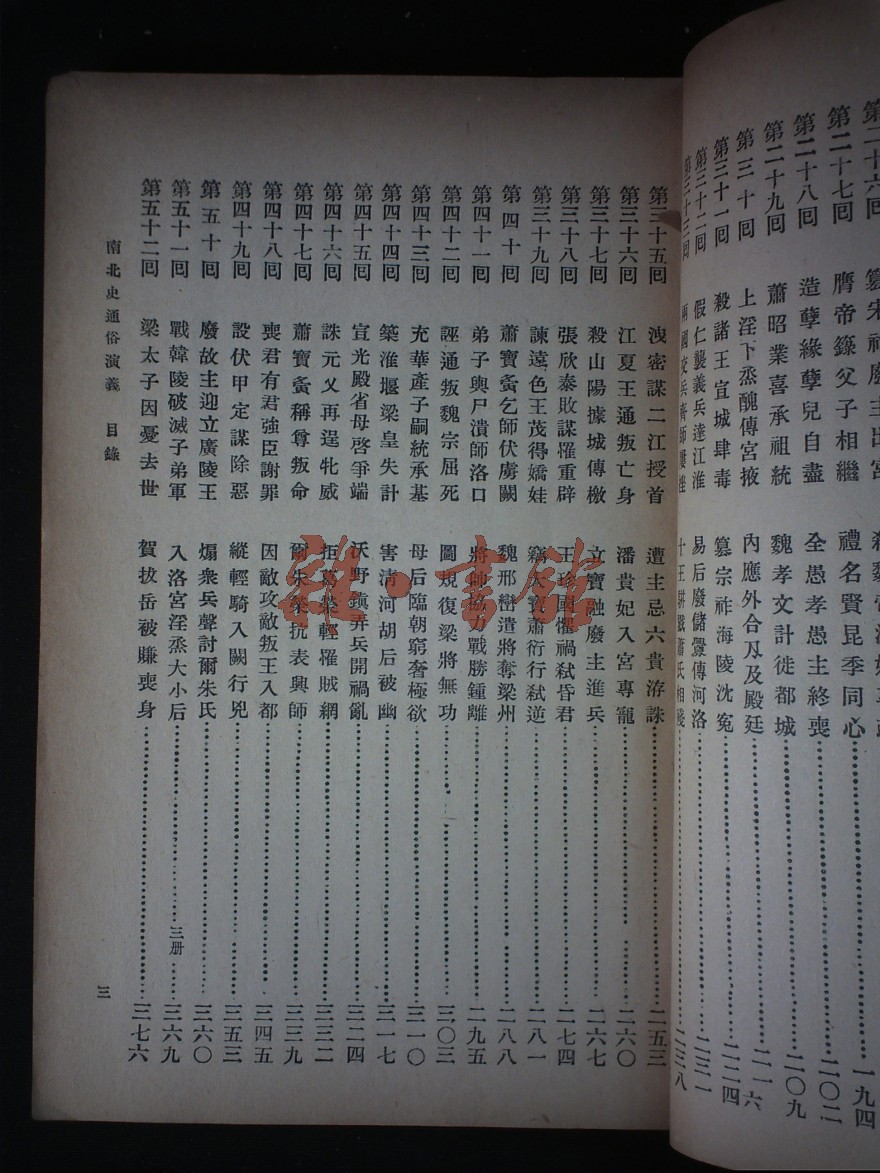 第二十六回 篡宋祚廢主出宮
第二十七回 膺帝籙父子相繼 禮名賢昆季同心……一九四
第二十八回 造孽緣孽兒自盡 全愚孝愚主終喪……二〇二
第二十九回 蕭昭業喜承祖統 魏孝文計徙都城……二〇九
第三十回 上淫下烝醜傳宮掖 內應外合刄及殿廷……二一六
第三十一回 殺諸王宣城肆毒 篡宗祚海陵沈冤……二二四
第三十二回 假仁襲義兵達江淮 易后廢儲釁傳河洛……二三一
第三十三回 兩國交兵齊師屢挫 十王駢戮蕭氏相殘……二三八
第三十五回 洩密謀二江授首 遭主忌六貴洊誅……二五三
第三十六回 江夏王通叛亡身 潘貴妃入宮專寵……二六〇
第三十七回 殺山陽據城傳檄 立寶融廢主進兵……二六七
第三十八回 張欣泰敗謀罹重辟 王珍國懼禍弒昏君……二七四
第三十九回 諫遠色王茂得嬌娃 竊大寶蕭衍行弒逆……二八一
第四十回 蕭寶夤乞師伏虜闕 魏邢巒遣將奪梁州……二八八
第四十一回 弟子輿尸潰師洛口 將帥協力戰勝鍾離……二九五
第四十二回 誣通叛魏宗屈死 圖規復梁將無功……三〇三
第四十三回 充華產子嗣統承基 母后臨朝窮奢極欲……三一〇
第四十四回 築淮堰梁皇失計 害清河胡后被幽……三一七
第四十五回 宣光殿省母啓爭端 沃野鎮弄兵開禍亂……三二四
第四十六回 誅元乂再逞牝威 拒葛榮輕罹賊網……三三二
第四十七回 蕭寶夤稱尊叛命 爾朱榮抗表興師……三三九
第四十八回 喪君有君強臣謝罪 因敵攻敵叛王入都……三四五
第四十九回 設伏甲定謀除惡 縱輕騎入闕行兇……三五三
第五十回 廢故主迎立廣陵王 煽衆兵聲討爾朱氏……三六〇
第五十一回 戰韓陵破滅子弟軍 入洛宮淫烝大小后……三册……三六九
第五十二回 梁太子因憂去世 賀拔岳被賺喪身……三七六
南北史通俗演義 目錄
三
雜·書館